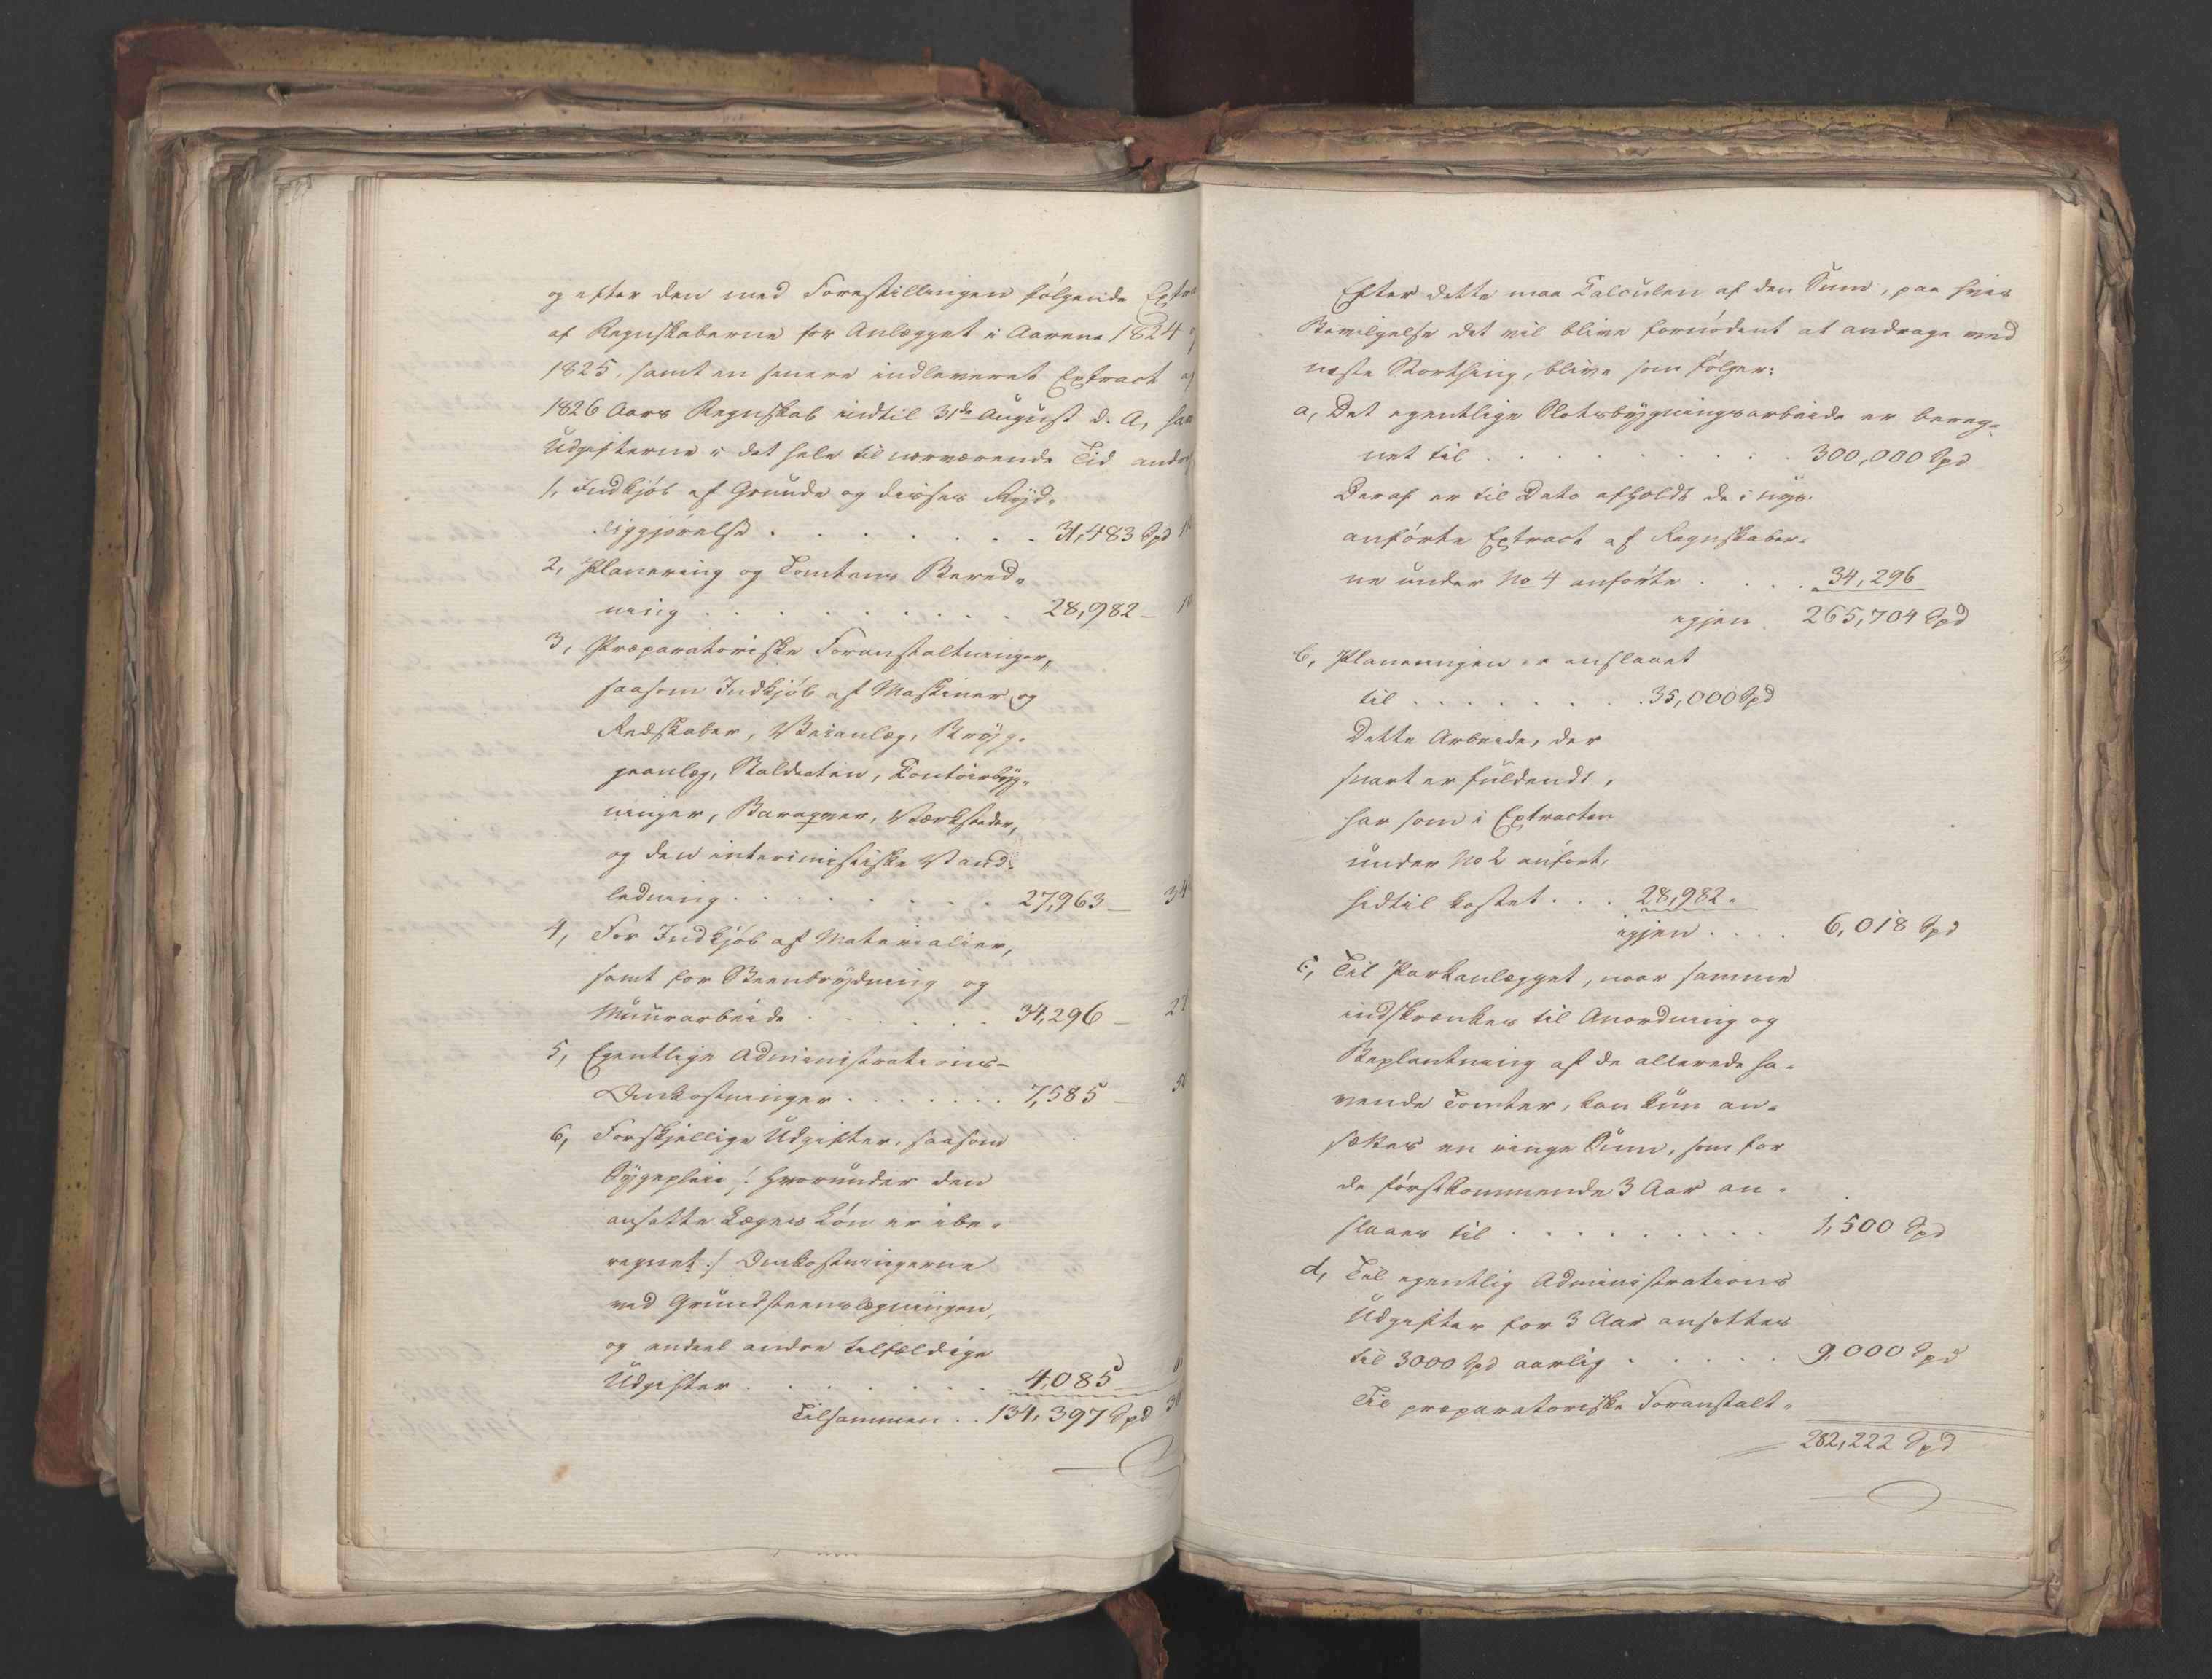 og efter den med Forestillingen følgende Extra
af Regnskaberne for Anlægget i Aarene 1824
1825, samt en senere indleveret Extract af
1826 Aars Regnskab indtil 31de August d. A, har
Udgifterne i det hele til nærværende Tid andra
1, Indkjøb af Grunde og disses Ryd-
diggjørelse . . . . . . . 31,483 Spd
2, Planering og Tomtens Bered-
ning . . . . . . . . . 28,982 –
3, Præparatoriske Foranstaltninger,
saasom Indkjøb af Maskiner og
Redskaber, Veianlæg, Bryg-
geanlæg, Staldraten, Contoirbyg-
ninger, Baraquer, Værksteder,
og den interimistiske Vand-
ledning . . . . . . . . 27,963 – 34
4, For Indkjøb af Materialier,
samt for Steenbrydning og
Muurarbeide . . . . . . 34,296 – 27
5, Egentlige Administrations-
Omkostninger . . . . . . . 7,585 – 50
6, Forskjellige Udgifter, saasom
Sygepleie /: hvorunder den
ansatte Læges Løn er ibe-
regnet :/ Omkostningerne
ved Grundsteenslægningen,
og andeel andre tilfældige
Udgifter . . . . . . . 4,085
Tilsammen . . 134,397 Spd 30
Efter dette maa Calculen af den Sum, paa hvis
Bevilgelse det vil blive fornødent at andrage ved
næste Storthing, blive som følger:
a, Det egentlige Slotsbygningsarbeide er bereg-
net til . . . . . . . . . 300,000 Spd
Deraf er til Dato afholdt de i nys-
anførte Extract af Regnskaber-
ne under No 4 anførte . . . . 34,296
igjen . 265,704 Spd
b, Planeringen er anslaaet
til . . . . . . . . 35,000 Spd
Dette Arbeide, der
snart er fuldendt,
har som i Extracten
under No 2 anført,
hidtil kostet . . . 28,982 -
igjen . . . . 6,018 Spd
c, Til Parkanlægget, naar samme
indskrænkes til Anordning og
Beplantning af de allerede ha-
vende Tomter, kan kun an-
sættes en ringe Sum, som for
de førstkommende 3 Aar an-
slaaes til . . . . . . . . . 1,500 Spd
d, Til egentlig Administrations
Udgifter for 3 Aar ansættes
til 3000 Spd aarlig . . . . . 9,000 Spd
Til præparatoriske Foranstalt-
282,222 Spd